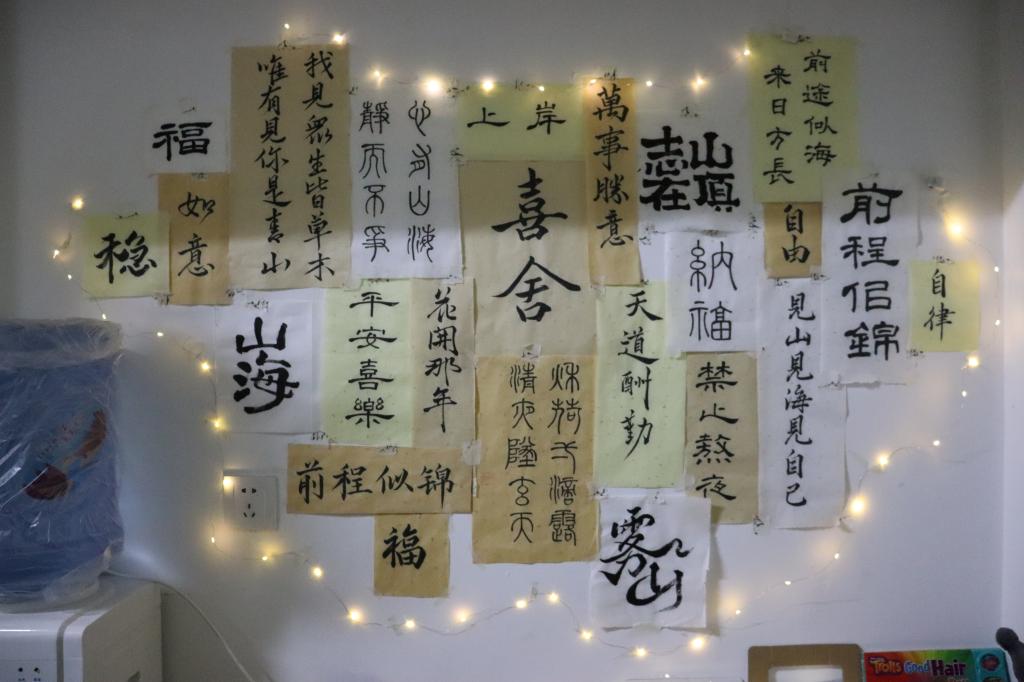 福
如意
稳
我見眾生皆草木
唯有見你是青山
心有山海
靜而不爭
上岸
喜舍
萬事勝意
志在
山頂
前途似海
来日方長
自由
前程佀錦
自律
納福
山海
平安喜樂
花開那年
天道酬勤
禁止熬夜
見山見海見自己
秌荷弌滴露
清夜墜玄天
前程似锦
福
雾山
Trolls Good Hair